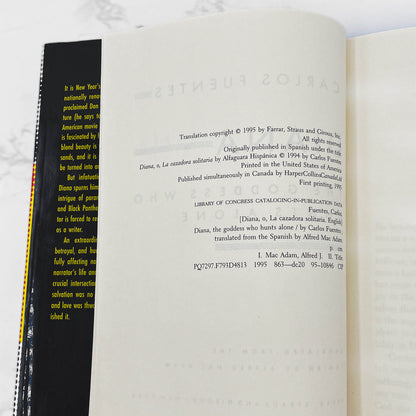 It is New Year's
nationally reno
proclaimed Don
ture (he says to
American movie
is fascinated by h
blond beauty is
sands, and it is
be turned into a
But infatuati
Diana spurns him
intrigue of parano
and Black Panthe
tor is forced to rea
as a writer.
An extraordin
betrayal, and hum
fully affecting no
narrator's life and
crucial intersection
salvation was no
and love was threa
ished it.
CARLOS FUENTES
Translation copyright © 1995 by Farrar, Straus and Giroux, Inc.
All rights reserved
Originally published in Spanish under the title
Diana, o, La cazadora solitaria by Alfaguara Hispánica © 1994 by Carlos Fuentes
Printed in the United States of America
Published simultaneously in Canada by HarperCollinsCanadaLtd
First printing, 1995
LIBRARY OF CONGRESS CATALOGING-IN-PUBLICATION DATA
Fuentes, Carlos.
[Diana, o, La cazadora solitaria. English]
Diana, the goddess who hunts alone / by Carlos Fuentes;
translated from the Spanish by Alfred Mac Adam.
p. cm.
I. Mac Adam, Alfred J. II. Title.
PQ7297.F793D4813 1995 863—dc20 95-10846 CIP